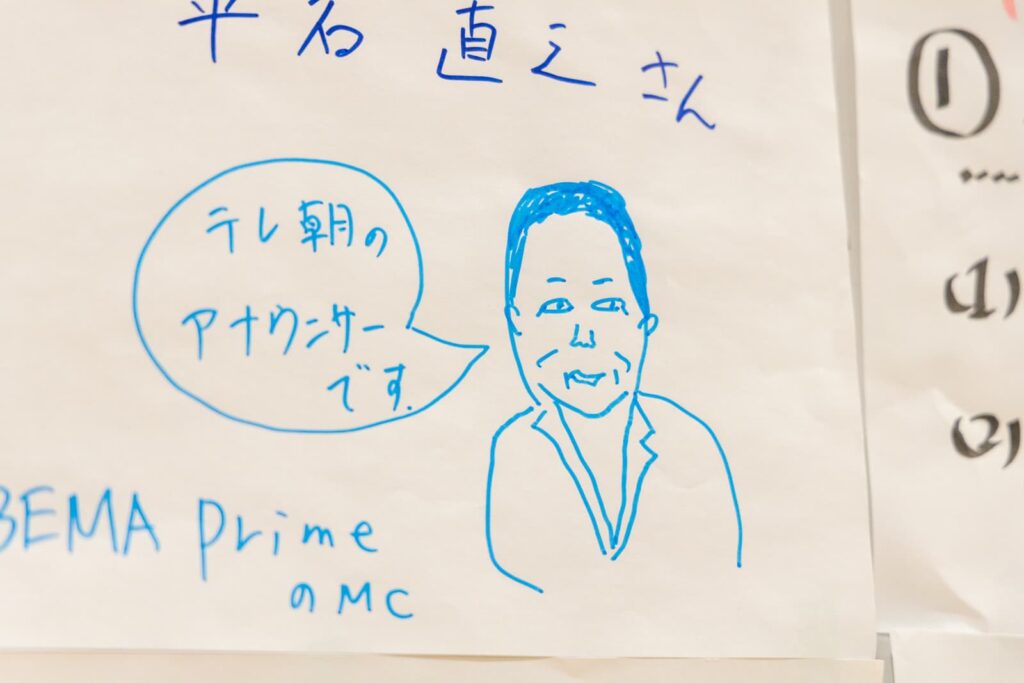 平石 直之 さん
テレ朝の
アナウンサー
です.
BEMA prime
のMC
①
(1)
(2)